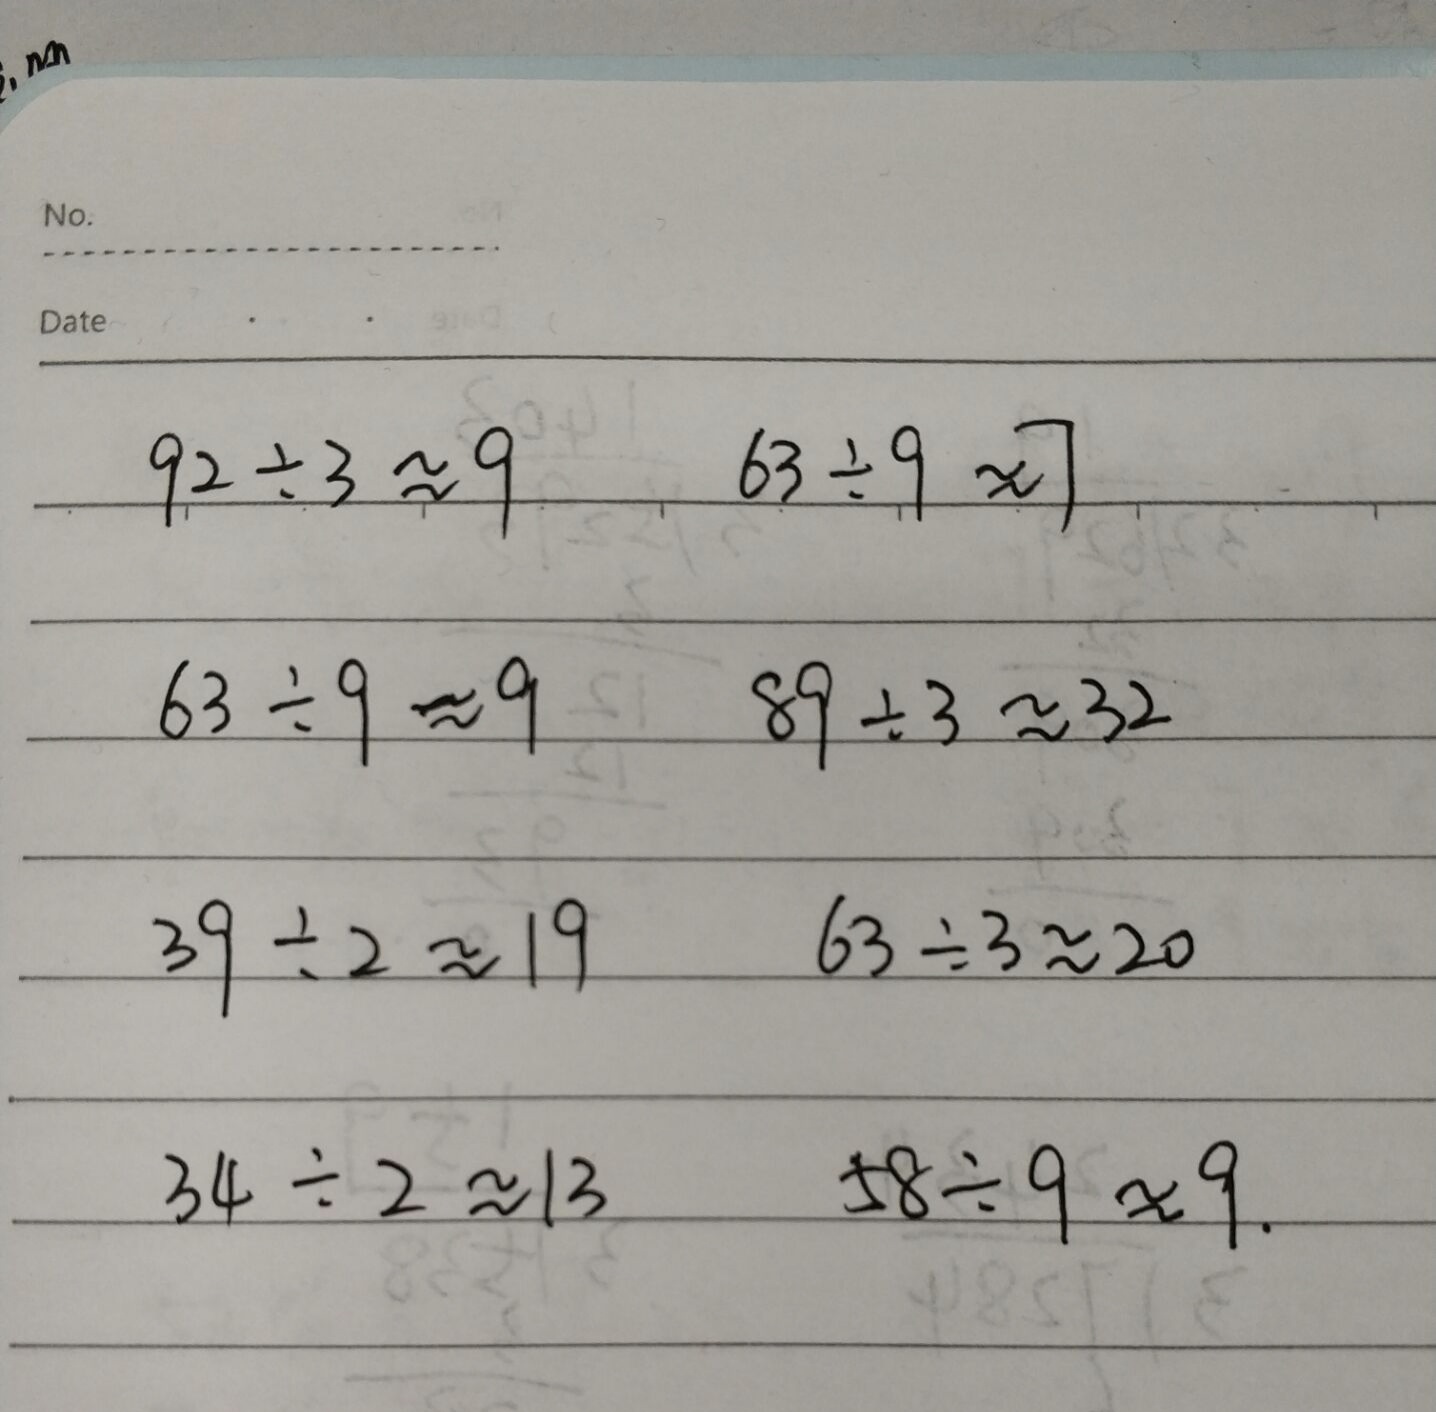 No.
Date
92÷3≈9 63÷9≈7
63÷9≈9 89÷3≈32
39÷2≈19 63÷3≈20
34÷2≈13 58÷9≈9.